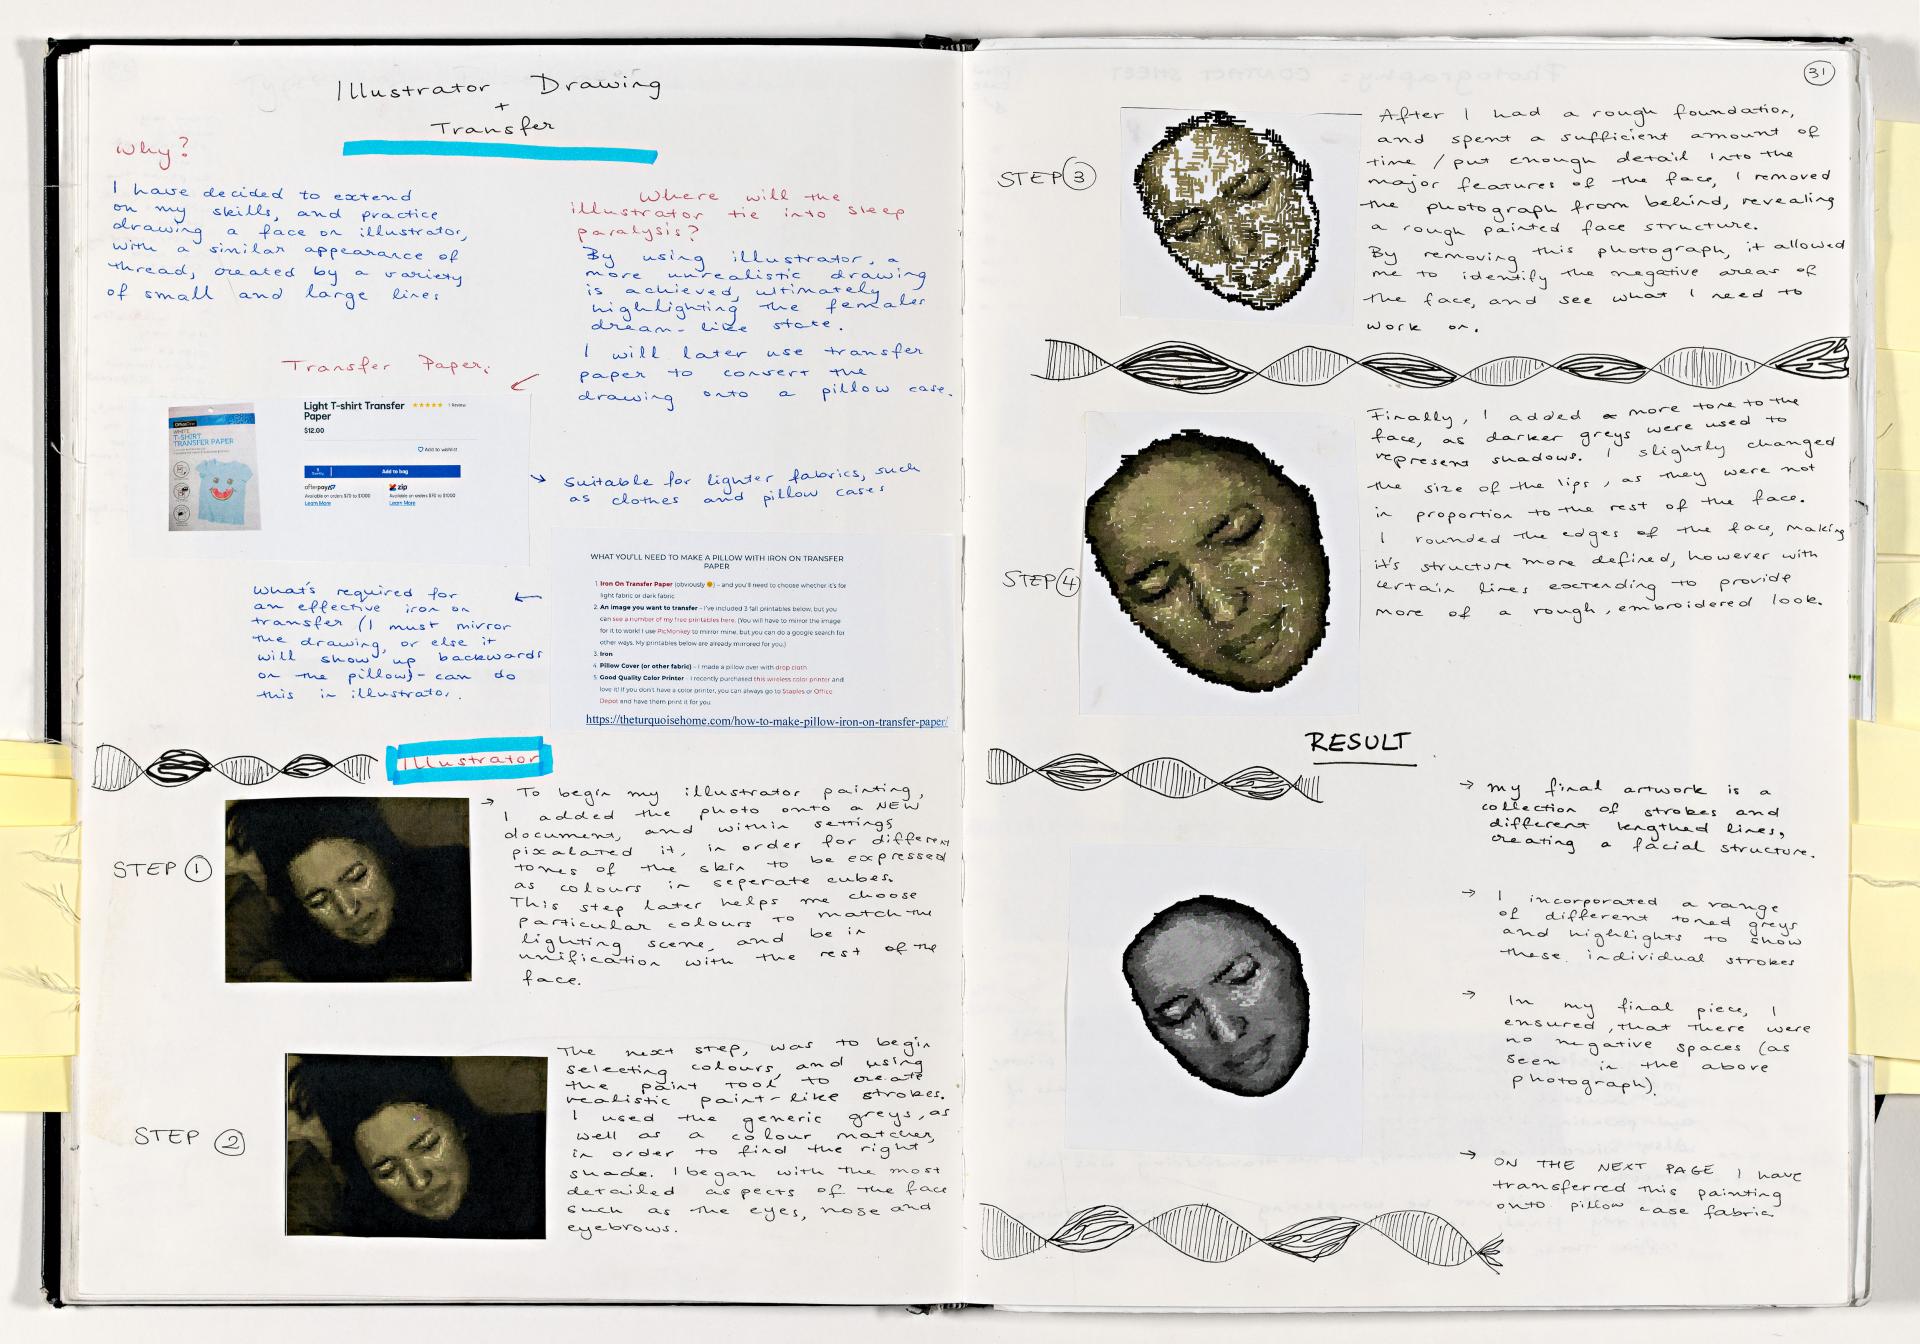 Illustrator Drawing
+
Transfer
Why?
I have decided to extend
on my skills, and practice
drawing a face on illustrator,
with a similar appearance of
thread, created by a variety
of small and large lines
Where will the
illustrator tie into sleep
paralysis?
By using illustrator, a
more unrealistic drawing
is achieved, ultimately
highlighting the females
dream-like state.
I will later use transfer
paper to convert the
drawing onto a pillow case.
Transfer Paper:
OfficeOne
WHITE
T-SHIRT
TRANSFER PAPER
Light T-shirt Transfer
Paper
1 Review
$12.00
Add to wishlist
1
Quantity
Add to bag
afterpay
Available on orders $70 to $1000
Learn More
zip
Available on orders $70 to $1000
Learn More
suitable for lighter fabrics, such
as clothes and pillow cases
What's required for
an effective iron on
transfer (I must mirror
the drawing, or else it
will show up backwards
on the pillow)- can do
this in illustrator.
WHAT YOU'LL NEED TO MAKE A PILLOW WITH IRON ON TRANSFER
PAPER
1. Iron On Transfer Paper (obviously 🙂) – and you'll need to choose whether it's for
light fabric or dark fabric
2. An image you want to transfer – I've included 3 fall printables below, but you
can see a number of my free printables here. (You will have to mirror the image
for it to work! I use PicMonkey to mirror mine, but you can do a google search for
other ways. My printables below are already mirrored for you.)
3. Iron
4. Pillow Cover (or other fabric) – I made a pillow over with drop cloth
5. Good Quality Color Printer – I recently purchased this wireless color printer and
love it! If you don't have a color printer, you can always go to Staples or Office
Depot and have them print it for you
https://theturquoisehome.com/how-to-make-pillow-iron-on-transfer-paper/
Illustrator
STEP 1
To begin my illustrator painting,
I added the photo onto a NEW
document, and within settings
pixalated it, in order for different
tones of the skin to be expressed
as colours in seperate cubes.
This step later helps me choose
particular colours to match the
lighting scene, and be in
unification with the rest of the
face.
STEP 2
The next step, was to begin
selecting colours, and using
the paint tool to create
realistic paint-like strokes.
I used the generic greys, as
well as a colour matcher,
in order to find the right
shade. I began with the most
detailed aspects of the face
such as the eyes, nose and
eyebrows.
31
STEP 3
After I had a rough foundation,
and spent a sufficient amount of
time / put enough detail into the
major features of the face, I removed
the photograph from behind, revealing
a rough painted face structure.
By removing this photograph, it allowed
me to identify the negative areas of
the face, and see what I need to
work on.
STEP 4
Finally, I added more tone to the
face, as darker greys were used to
represent shadows. I slightly changed
the size of the lips, as they were not
in proportion to the rest of the face.
I rounded the edges of the face, making
it's structure more defined, however with
certain lines exctending to provide
more of a rough, embroidered look.
RESULT
→ my final artwork is a
collection of strokes and
different lengthed lines,
creating a facial structure.
→ I incorporated a range
of different toned greys
and highlights to show
these individual strokes
→ In my final piece, I
ensured, that there were
no negative spaces (as
seen in the above
photograph).
→ ON THE NEXT PAGE I have
transferred this painting
onto pillow case fabric